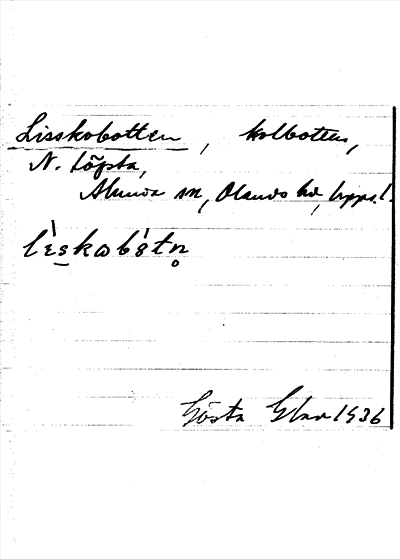 Lisskobotten, kolbotten,
N. Löpsta,
Alunda sn, Olands hd, Upps. l.
lɛskabɵtn̥
Gösta 1936